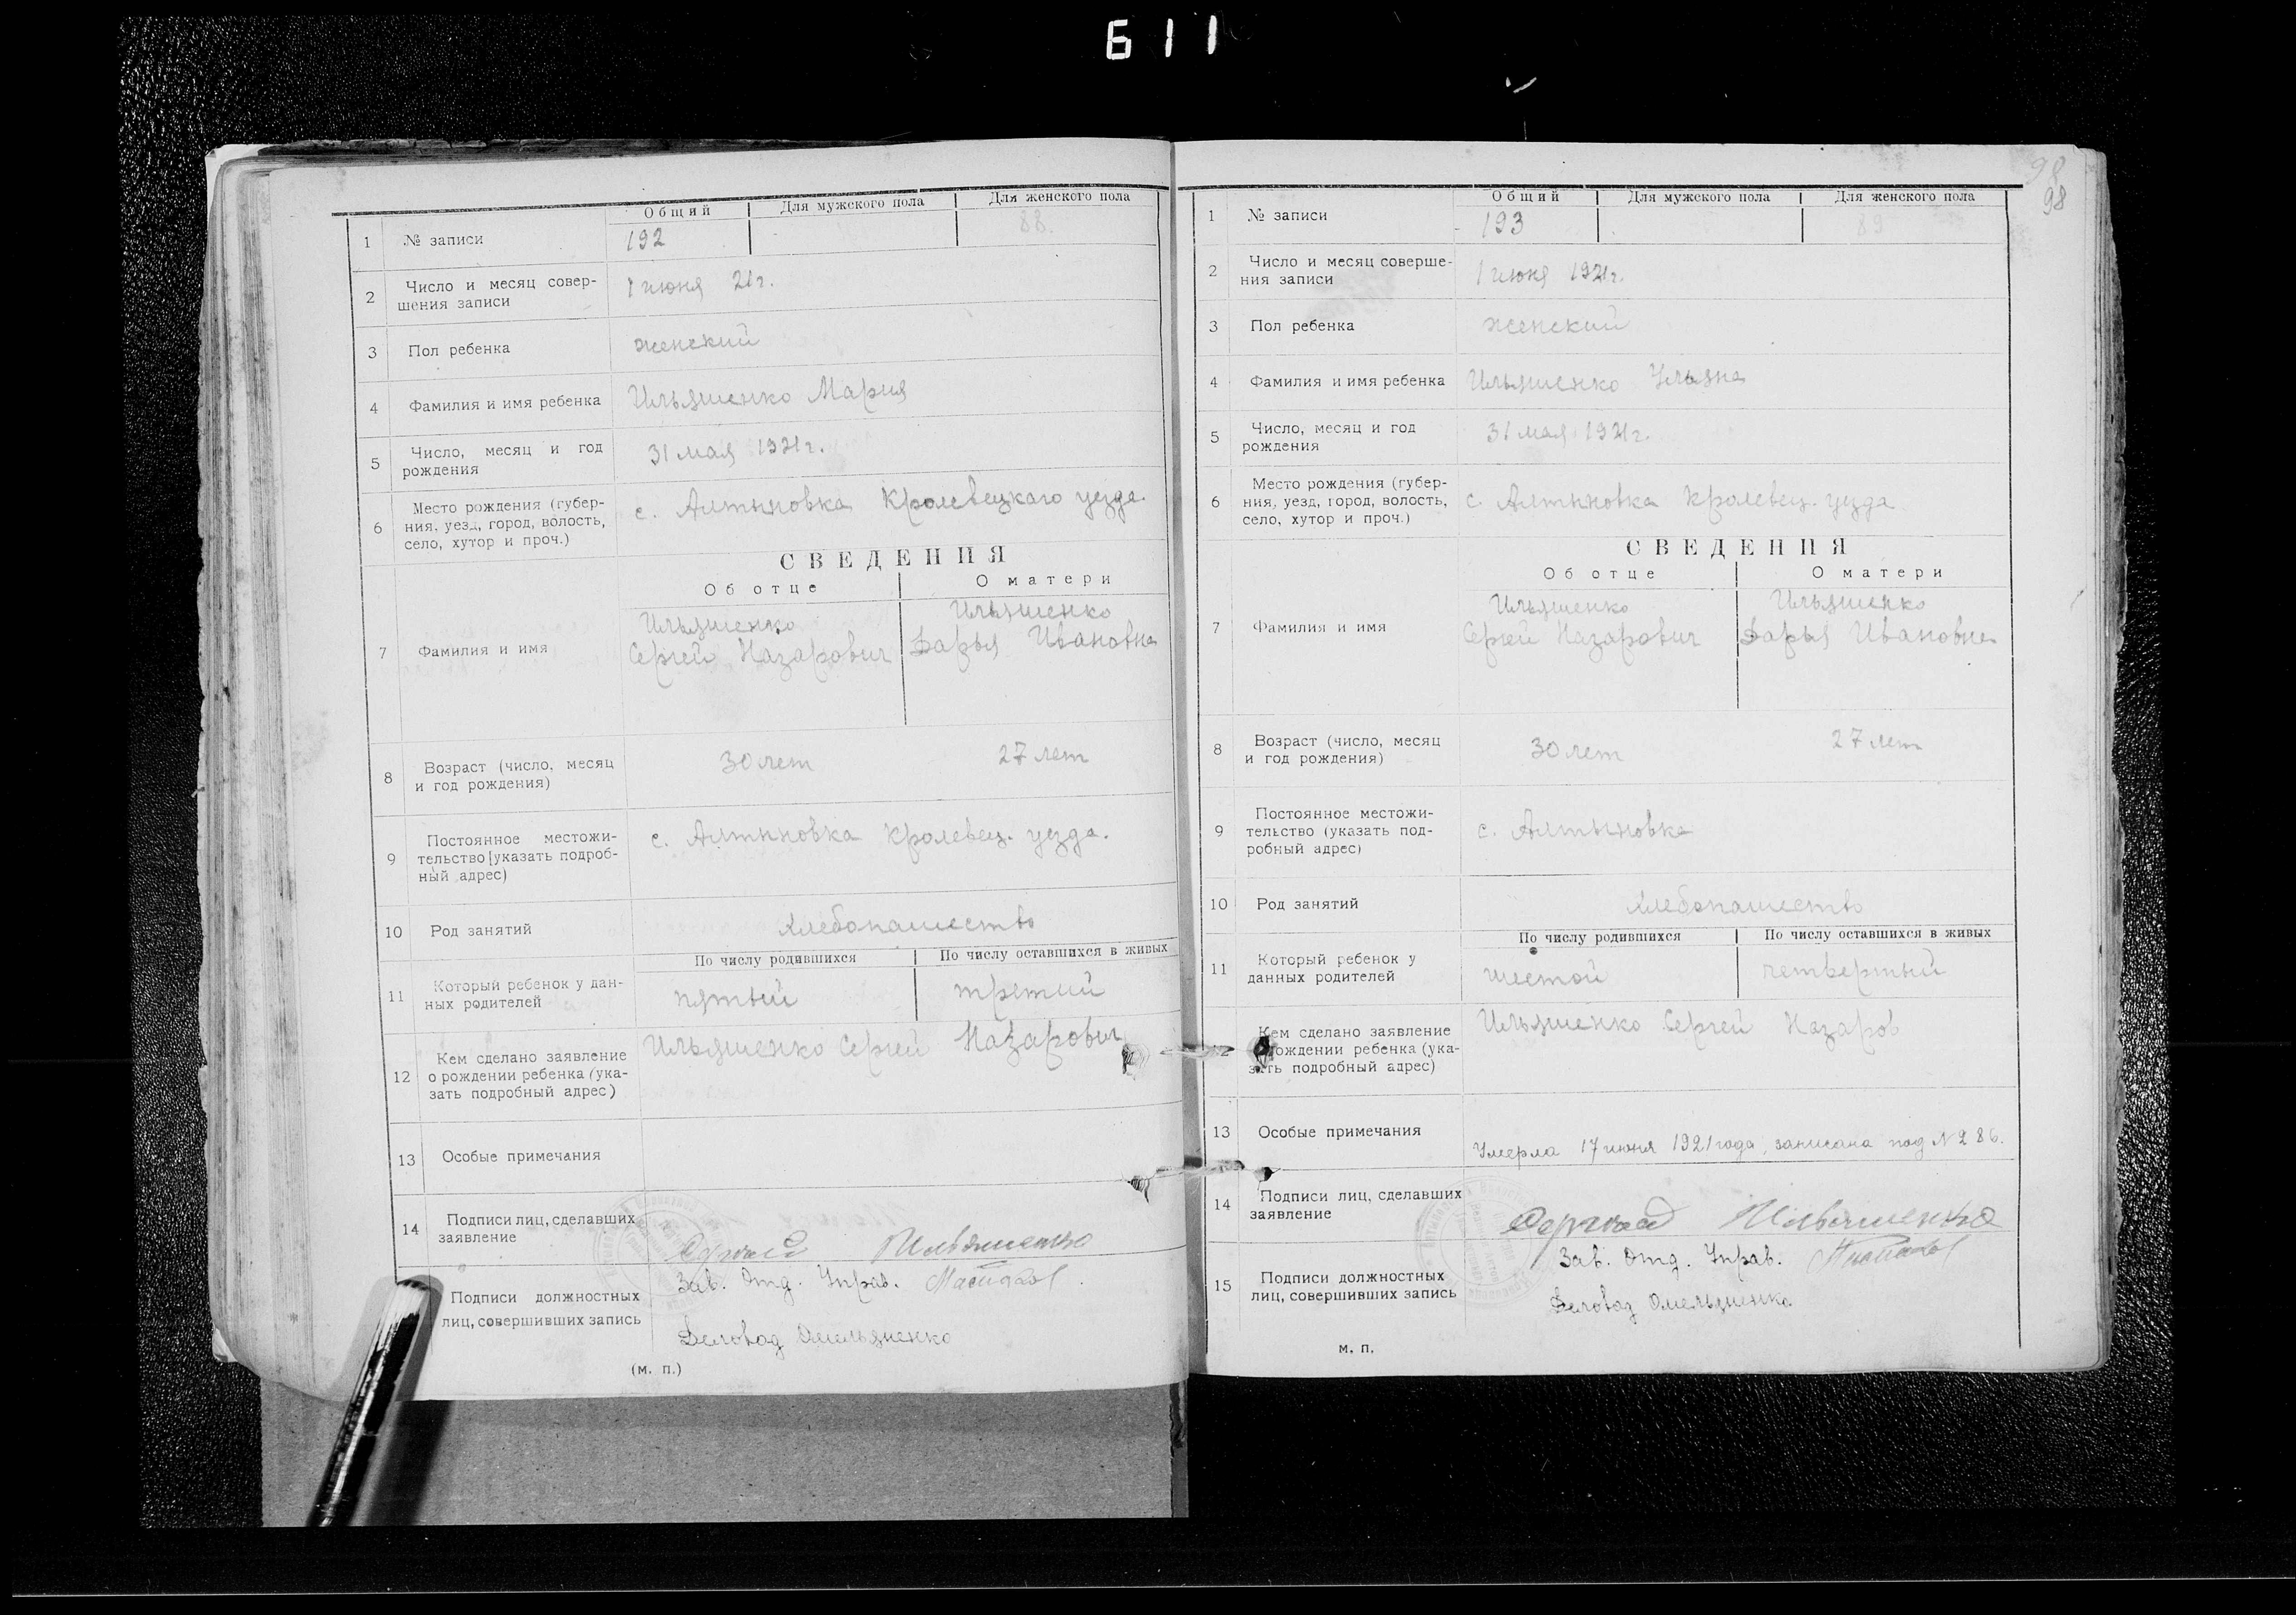 611
Общий Для мужского пола Для женского пола
1 № записи 192 88.
2 Число и месяц совер-
шения записи
1 июня 21 г.
3 Пол ребенка женский
4 Фамилия и имя ребенка Ильяшенко Мария
5 Число, месяц и год
рождения
31 мая 1921 г.
6 Место рождения (губер-
ния, уезд, город, волость,
село, хутор и проч.)
с. Алтыновка Кролевецкаго уезда.
СВЕДЕНИЯ
Об отце О матери
7 Фамилия и имя
Ильяшенко Ильяшенко
Сергей Назарович Дарья Ивановна
8 Возраст (число, месяц
и год рождения)
30 лет 27 лет
9 Постоянное местожи-
тельство [указать подроб-
ный адрес)
с. Алтыновка Кролевец. уезда.
10 Род занятий хлебопашество
По числу родившихся По числу оставшихся в живых
11 Который ребенок у дан-
ных родителей
пятый третий
12 Кем сделано заявление
о рождении ребенка (ука-
зать подробный адрес)
Ильяшенко Сергей Назарович
13 Особые примечания
14 Подписи лиц, сделавших
заявление
Сергей Ильяшенко
Подписи должностных
лиц, совершивших запись
Зав. Отд. Управ.
Деловод Омельяненко
(м. п.)
98
98
Общий Для мужского пола Для женского пола
1 № записи 193 89
2 Число и месяц соверше-
ния записи
1 июня 1921 г.
3 Пол ребенка женский
4 Фамилия и имя ребенка Ильяшенко Ульяна
5 Число, месяц и год
рождения
31 мая 1921 г.
6 Место рождения (губер-
ния, уезд, город, волость,
село, хутор и проч.)
с. Алтыновка Кролевец. уезда
СВЕДЕНИЯ
Об отце О матери
7 Фамилия и имя
Ильяшенко Ильяшенко
Сергей Назарович Дарья Ивановна
8 Возраст (число, месяц
и год рождения)
30 лет 27 лет
9 Постоянное местожи-
тельство (указать под-
робный адрес)
с. Алтыновка
10 Род занятий хлебопашество
По числу родившихся По числу оставшихся в живых
11 Который ребенок у
данных родителей
шестой четвертый
Кем сделано заявление
рождении ребенка (ука-
зать подробный адрес)
Ильяшенко Сергей Назаров
13 Особые примечания
Умерла 17 июня 1921 года, записана под № 286.
14 Подписи лиц, сделавших
заявление
Сергей Ильяшенко
15 Подписи должностных
лиц, совершивших запись
Зав. Отд. Управ.
Деловод Омельяненко
м. п.